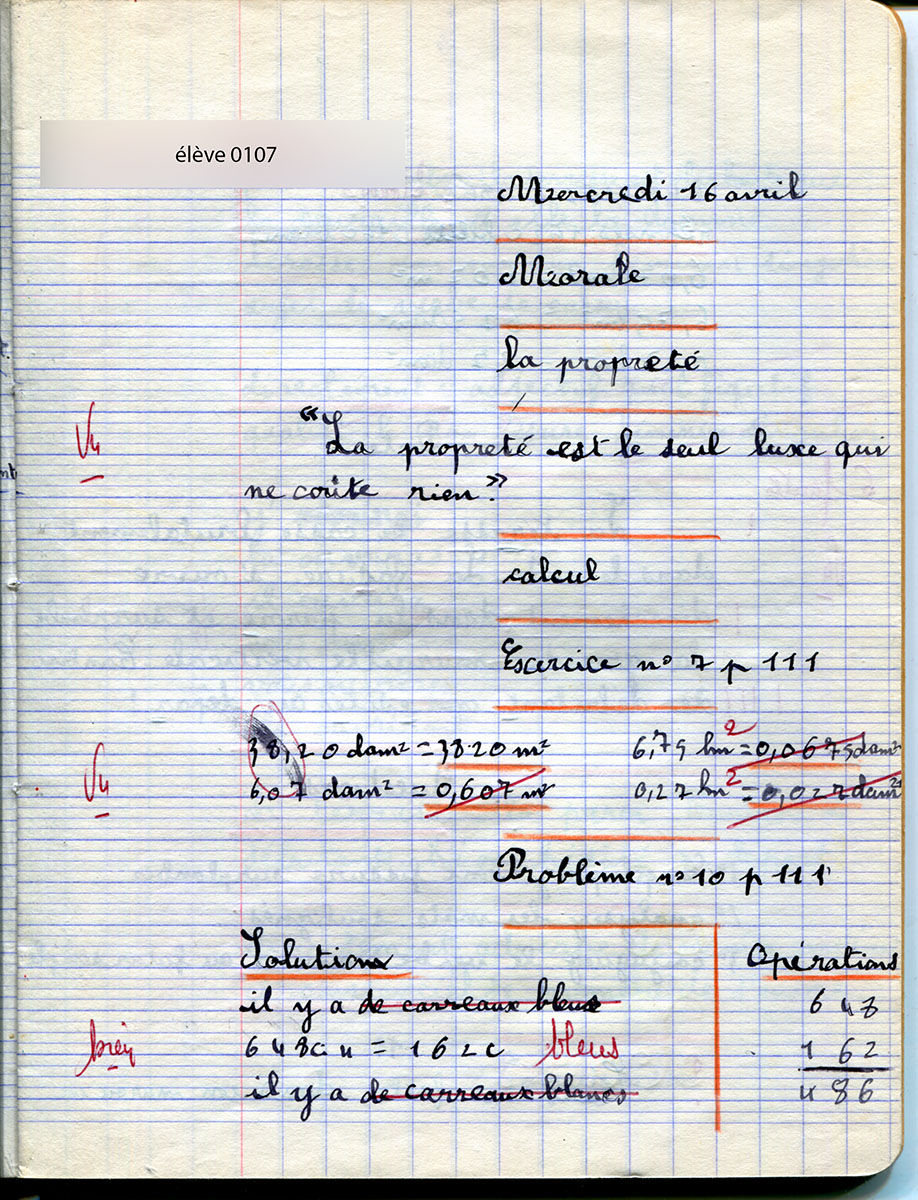 élève 0107
Mercredi 16 avril
Morale
la propreté
Vu
"La propreté est le seul luxe qui
ne coûte rien"
calcul
Exercice n° 7 p 111
38,20 dam² = 3820 m² 6,75 hm² = 0,0675 dam²
Vu
6,07 dam² = 0,607 m² 0,27 hm² = 0,027 dam²
Problème n° 10 p 111
Solution Opérations
il y a de carreaux bleus 648
bien
648c : 4 = 162c bleus 162
il y a de carreaux blancs 486